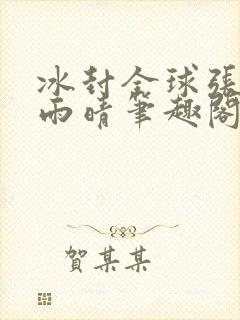 冰封全球張
雨晴筆趣閣
賀某某